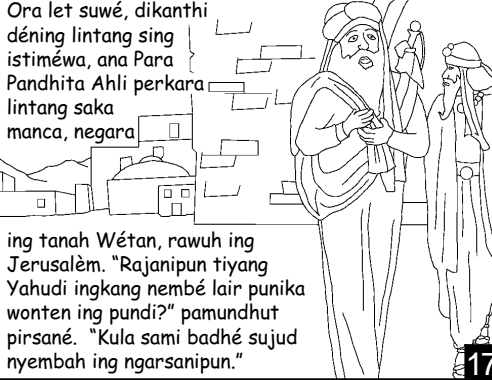 Ora let suwé, dikanthi
déning lintang sing
istiméwa, ana Para
Pandhita Ahli perkara
lintang saka
manca, negara
ing tanah Wétan, rawuh ing
Jerusalèm. “Rajanipun tiyang
Yahudi ingkang nembé lair punika
wonten ing pundi?” pamundhut
pirsané.  “Kula sami badhé sujud
nyembah ing ngarsanipun.”
17